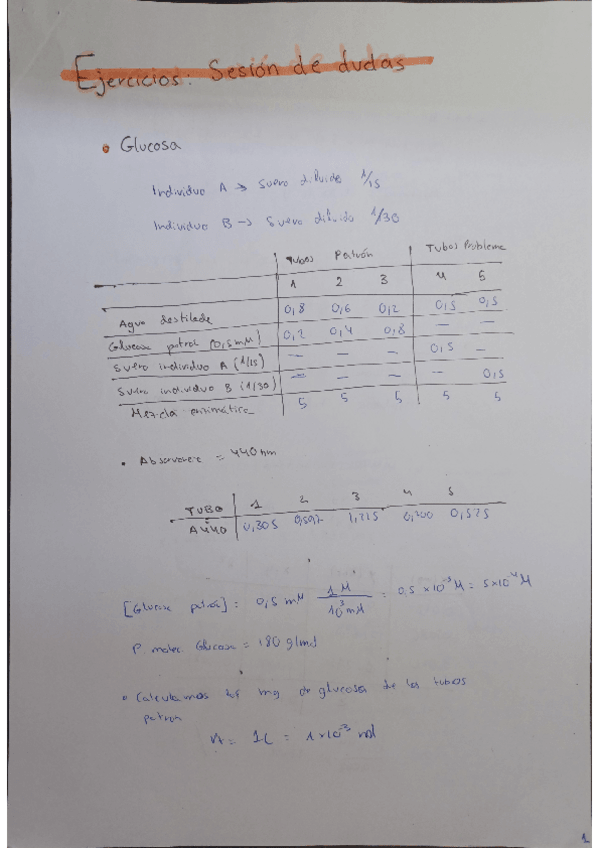 Ejercicios: Sesión de dudas
• Glucosa
Individuo A → Suero diluido 1/15
Individuo B → Suero diluido 1/30
Tubos Patrón Tubos Problema
1 2 3 4 5
Agua destilada 0,8 0,6 0,2 0,5 0,5
Glucosa patrón (0,5mM) 0,2 0,4 0,8 — —
Suero individuo A (1/15) — — — 0,5 —
Suero individuo B (1/30) — — — — 0,5
Mezcla enzimática 5 5 5 5 5
• = 440 nm
TUBO 1 2 3 4 5
A440 0,305 1,215 0,525
[Glucosa patrón] = 0,5 mM 1 M / 10³ mM = 0,5 × 10⁻³ M = 5×10⁻⁴ M
P. molec. Glucosa = 180 g/mol
• Calculamos los mg de glucosa de los tubos
patrón
= 1 × 10⁻³ mol
1